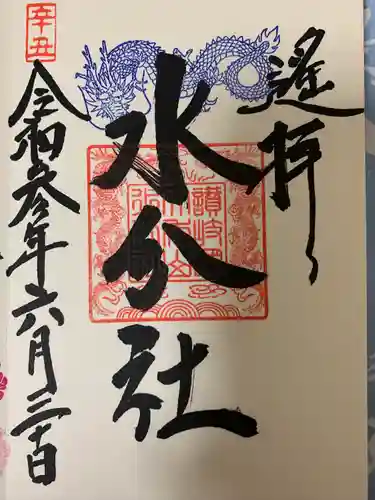 遙拝
水分社
辛丑
令和参年六月三十日